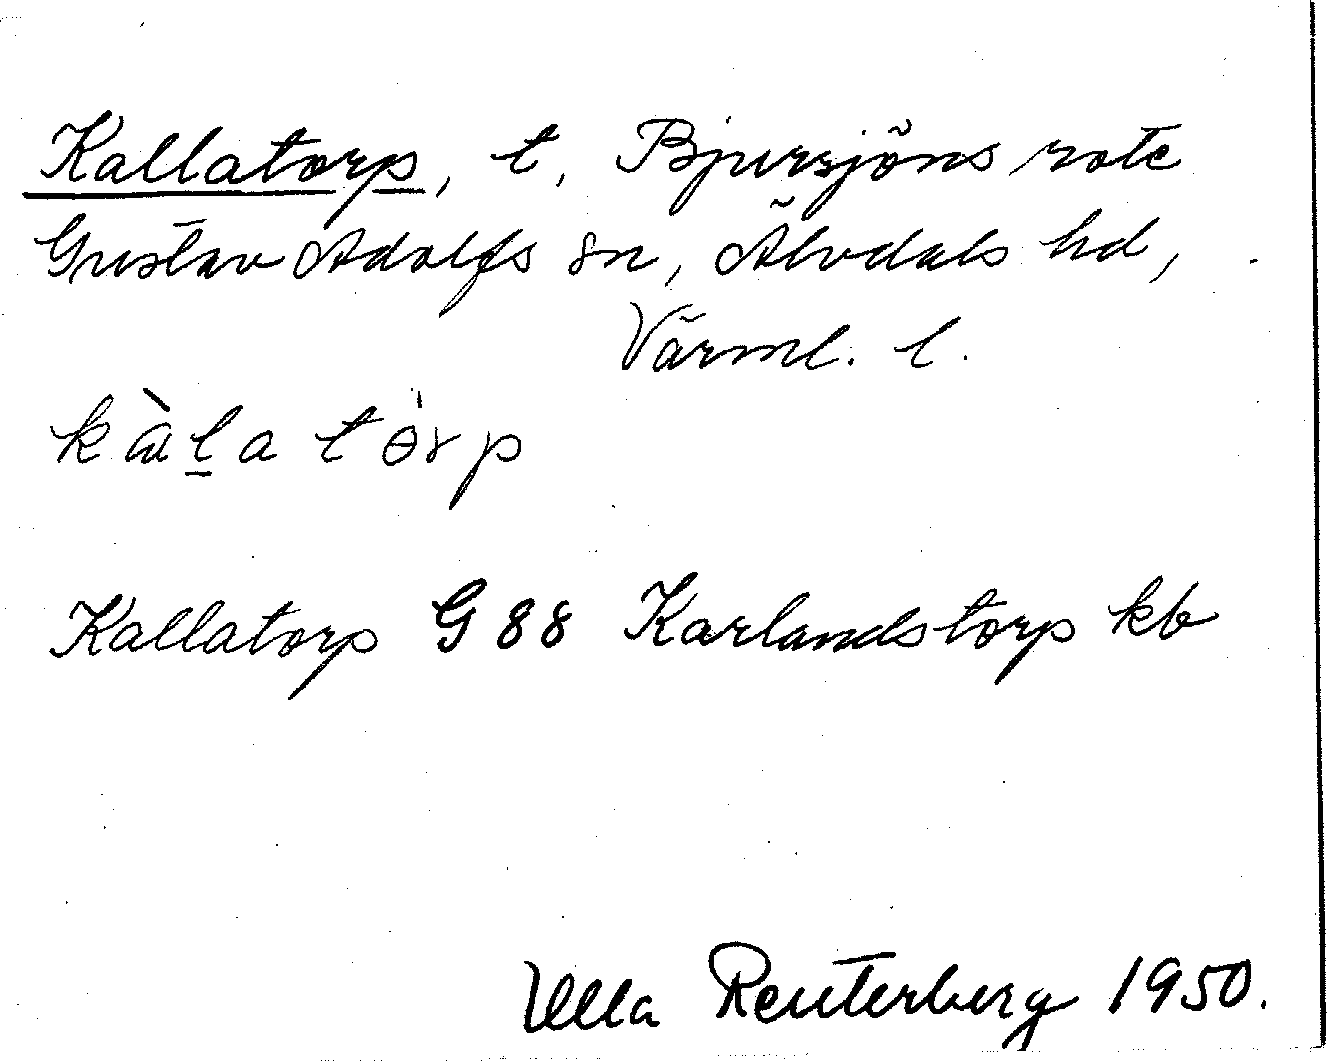 Kallatorp, t, Bjursjöns rote
Gustav Adolfs sn, Älvdals hd,
Värml. l.
kàl̠a tɵ̇rp
Kallatorp G 88 Karlandstorp kb
Ulla Reuterberg 1950.